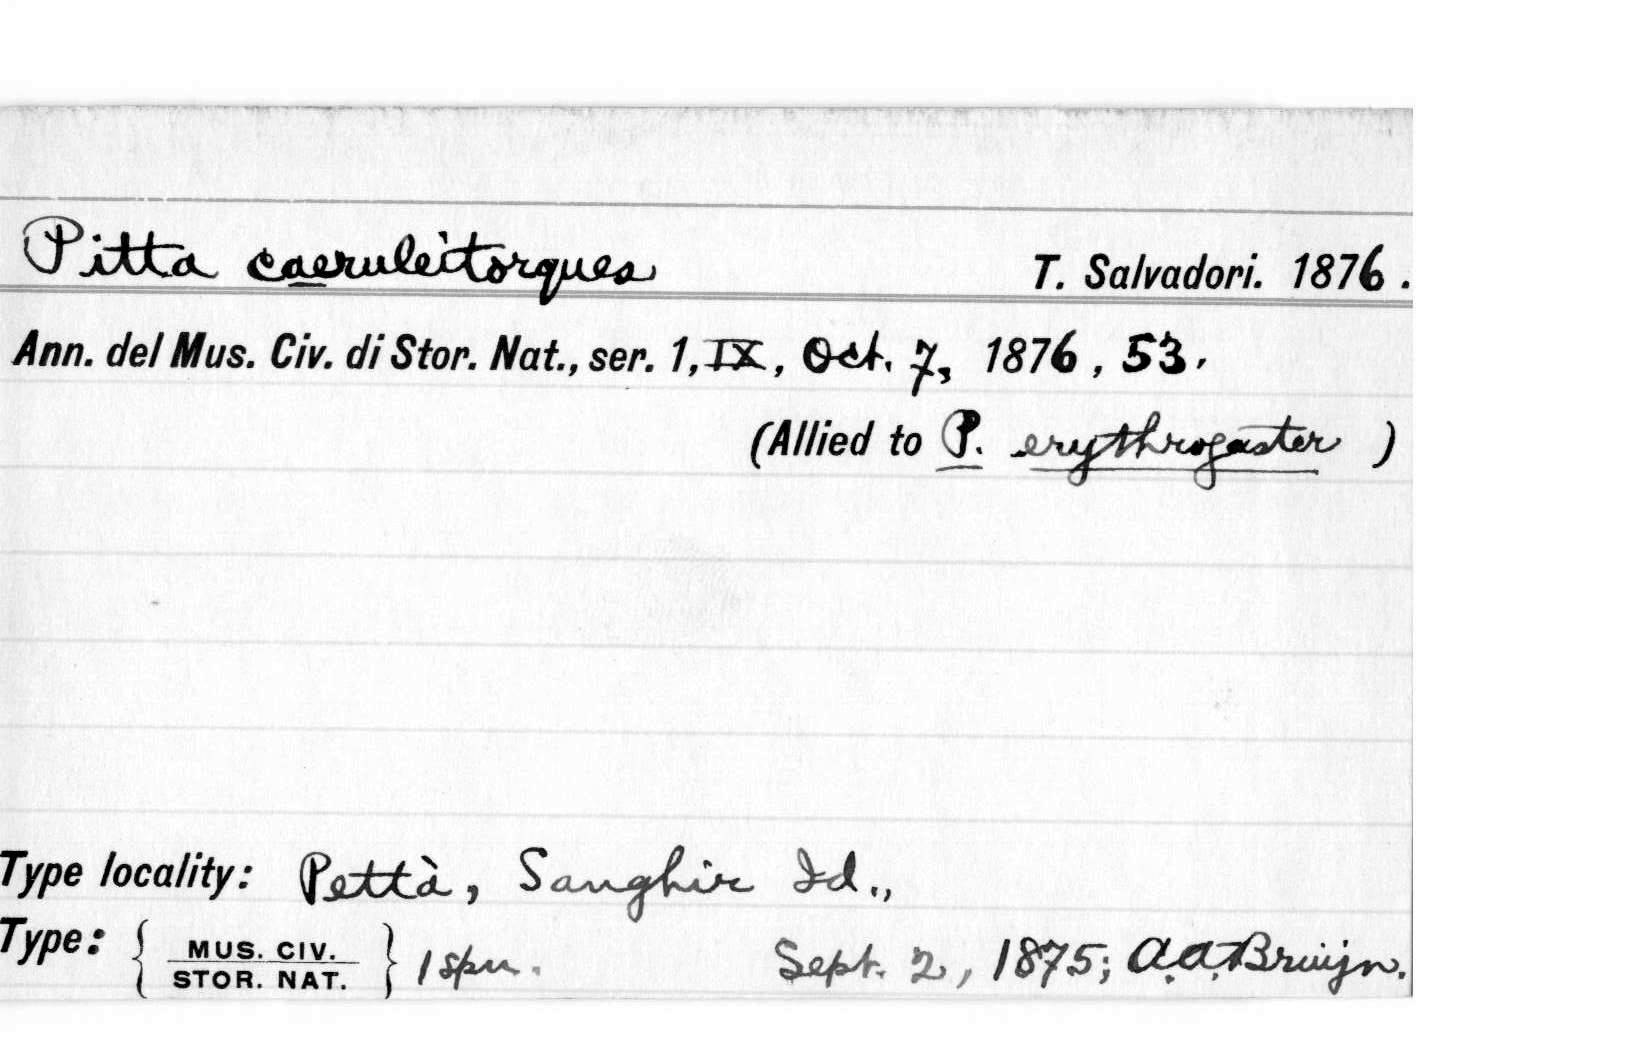 Pitta caeruleitorques T. Salvadori. 1876.
Ann. del Mus. Civ. di Stor. Nat., ser. 1, IX, Oct. 7, 1876, 53.
(Allied to P. erythrogaster )
Type locality: Pettà, Sanghir Id.,
Type: { MUS. CIV. STOR. NAT. } 1 spn. Sept. 2, 1875; A.A. Bruijn.